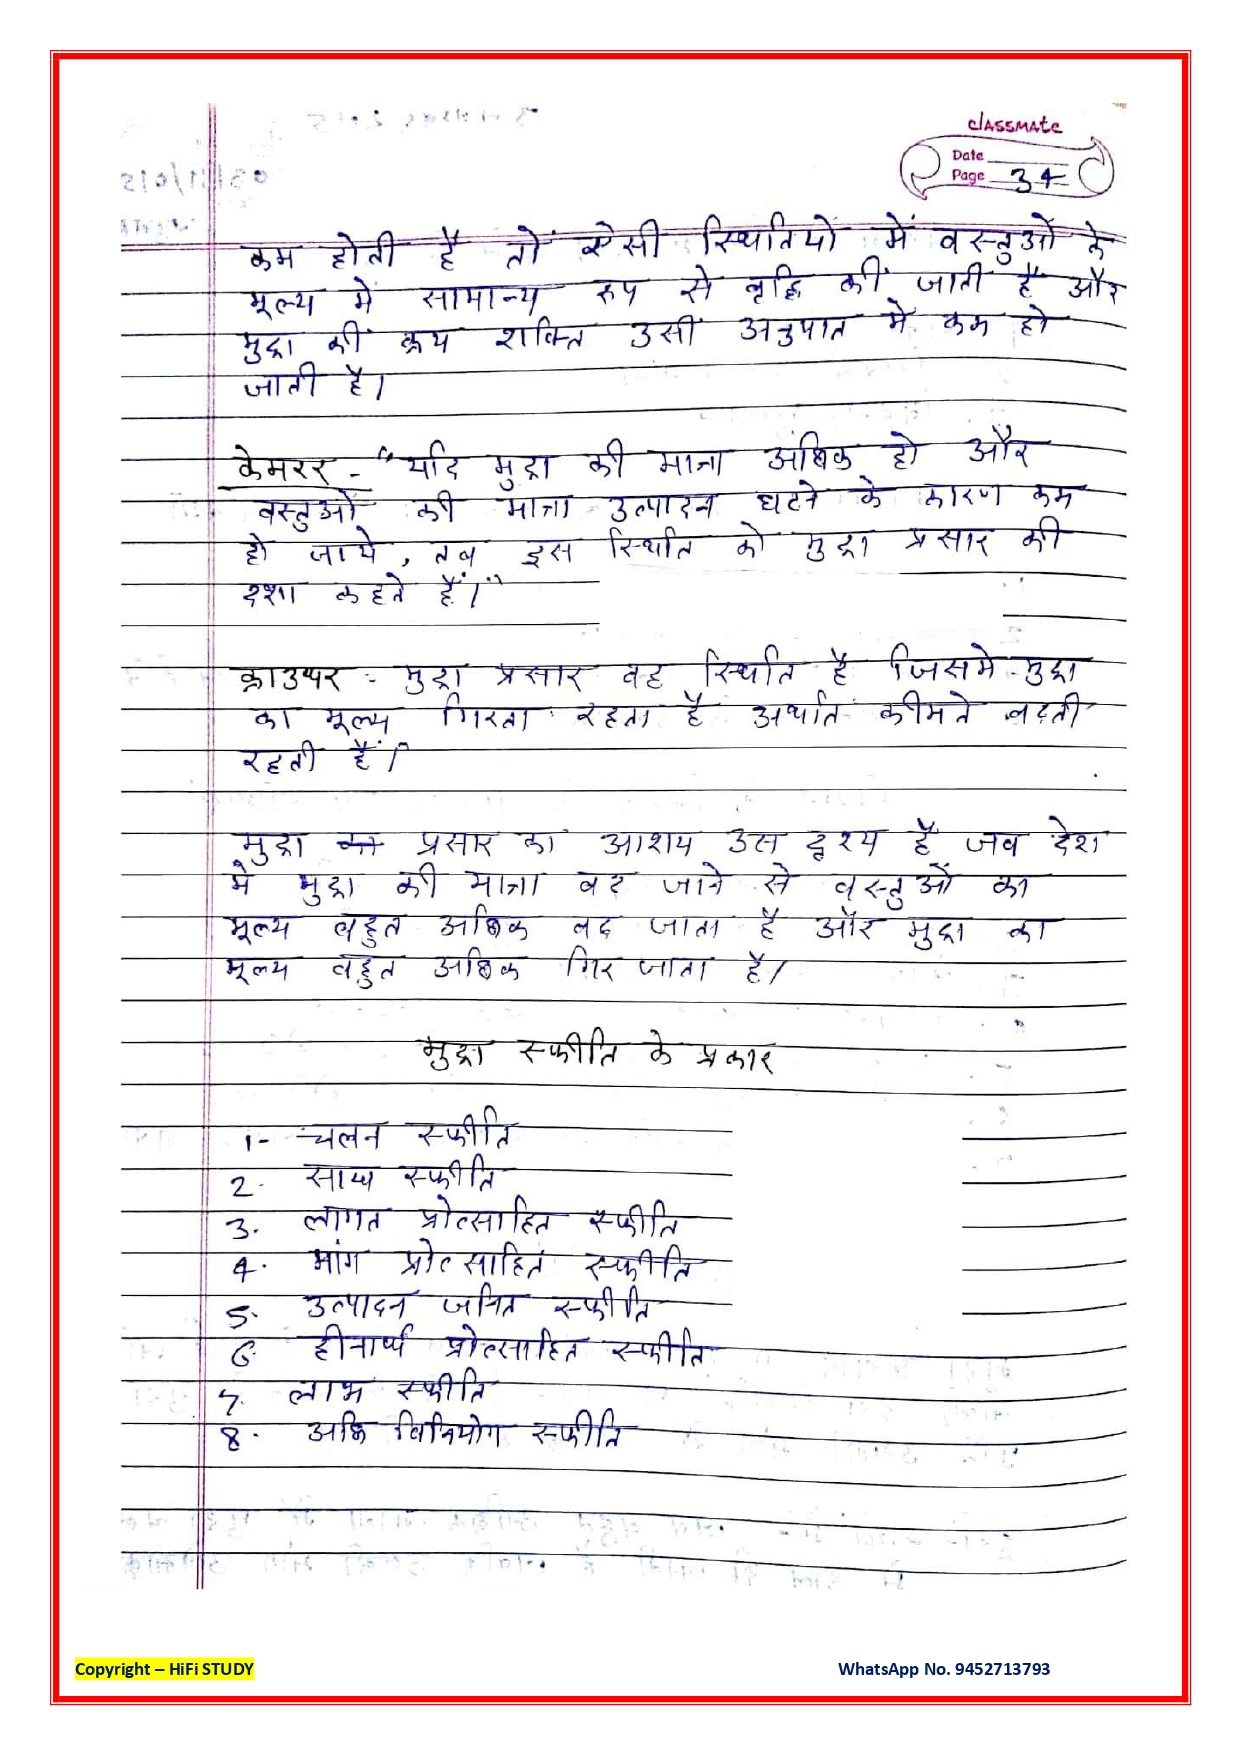 classmate
Date
Page 34
कम होती है तो ऐसी स्थितियों में वस्तुओं के
मूल्य में सामान्य रूप से वृद्धि की जाती है और
मुद्रा की क्रय शक्ति उसी अनुपात में कम हो
जाती है।
केमरर - "यदि मुद्रा की मात्रा अधिक हो और
वस्तुओं की मात्रा उत्पादन घटने के कारण कम
हो जाये, तब इस स्थिति को मुद्रा प्रसार की
दशा कहते हैं।"
क्राउथर - मुद्रा प्रसार वह स्थिति है जिसमे मुद्रा
का मूल्य गिरता रहता है अर्थात कीमते बढ़ती
रहती हैं।
मुद्रा प्रसार का आशय उस दृश्य है जब देश
मे मुद्रा की मात्रा बढ जाने से वस्तुओं का
मूल्य बहुत अधिक बढ जाता है और मुद्रा का
मूल्य बहुत अधिक गिर जाता है।
मुद्रा स्फीति के प्रकार
1- चलन स्फीति
2. साख स्फीति
3. लागत प्रोत्साहित स्फीति
4. मांग प्रोत्साहित स्फीति
5. उत्पादन जनित स्फीति
6. हीनार्थ प्रोत्साहित स्फीति
7. लाभ स्फीति
8. अति विनियोग स्फीति
Copyright – HiFi STUDY
WhatsApp No. 9452713793